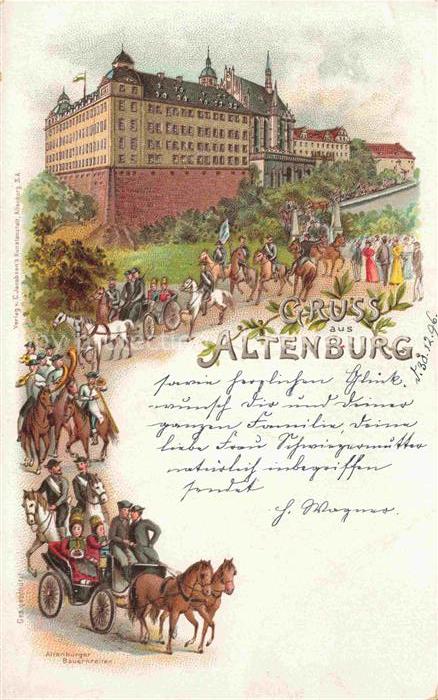 Verlag v. C. Jacobsen's Kunstanstalt, Altenburg, S.A.
GRUSS
aus
ALTENBURG
d. 30.12.96.
sowie herzlichen Glück-
wunsch Dir und deiner
ganzen Familie, deine
liebe Frau Schwiegermutter
natürlich inbegriffen
sendet
H. Wagner.
Ges. geschützt
Altenburger
Bauernreiten